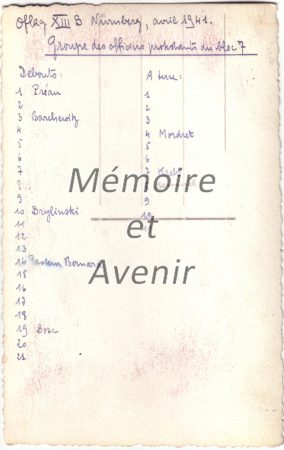 Oflag XIII B Nürnberg, avril 1941.
Groupe des officiers protestants du bloc 7
Debouts:
1 Préau
2
3 Barchewitz
4
5
6
7
8
9
10 Brylinski
11
12
13
14 Pasteur Bernard
15
16
17
18
19 Bosc
20
21
A terre:
1
2
3
4 Mordret
5
6
7
8
9
10
Mémoire
et
Avenir